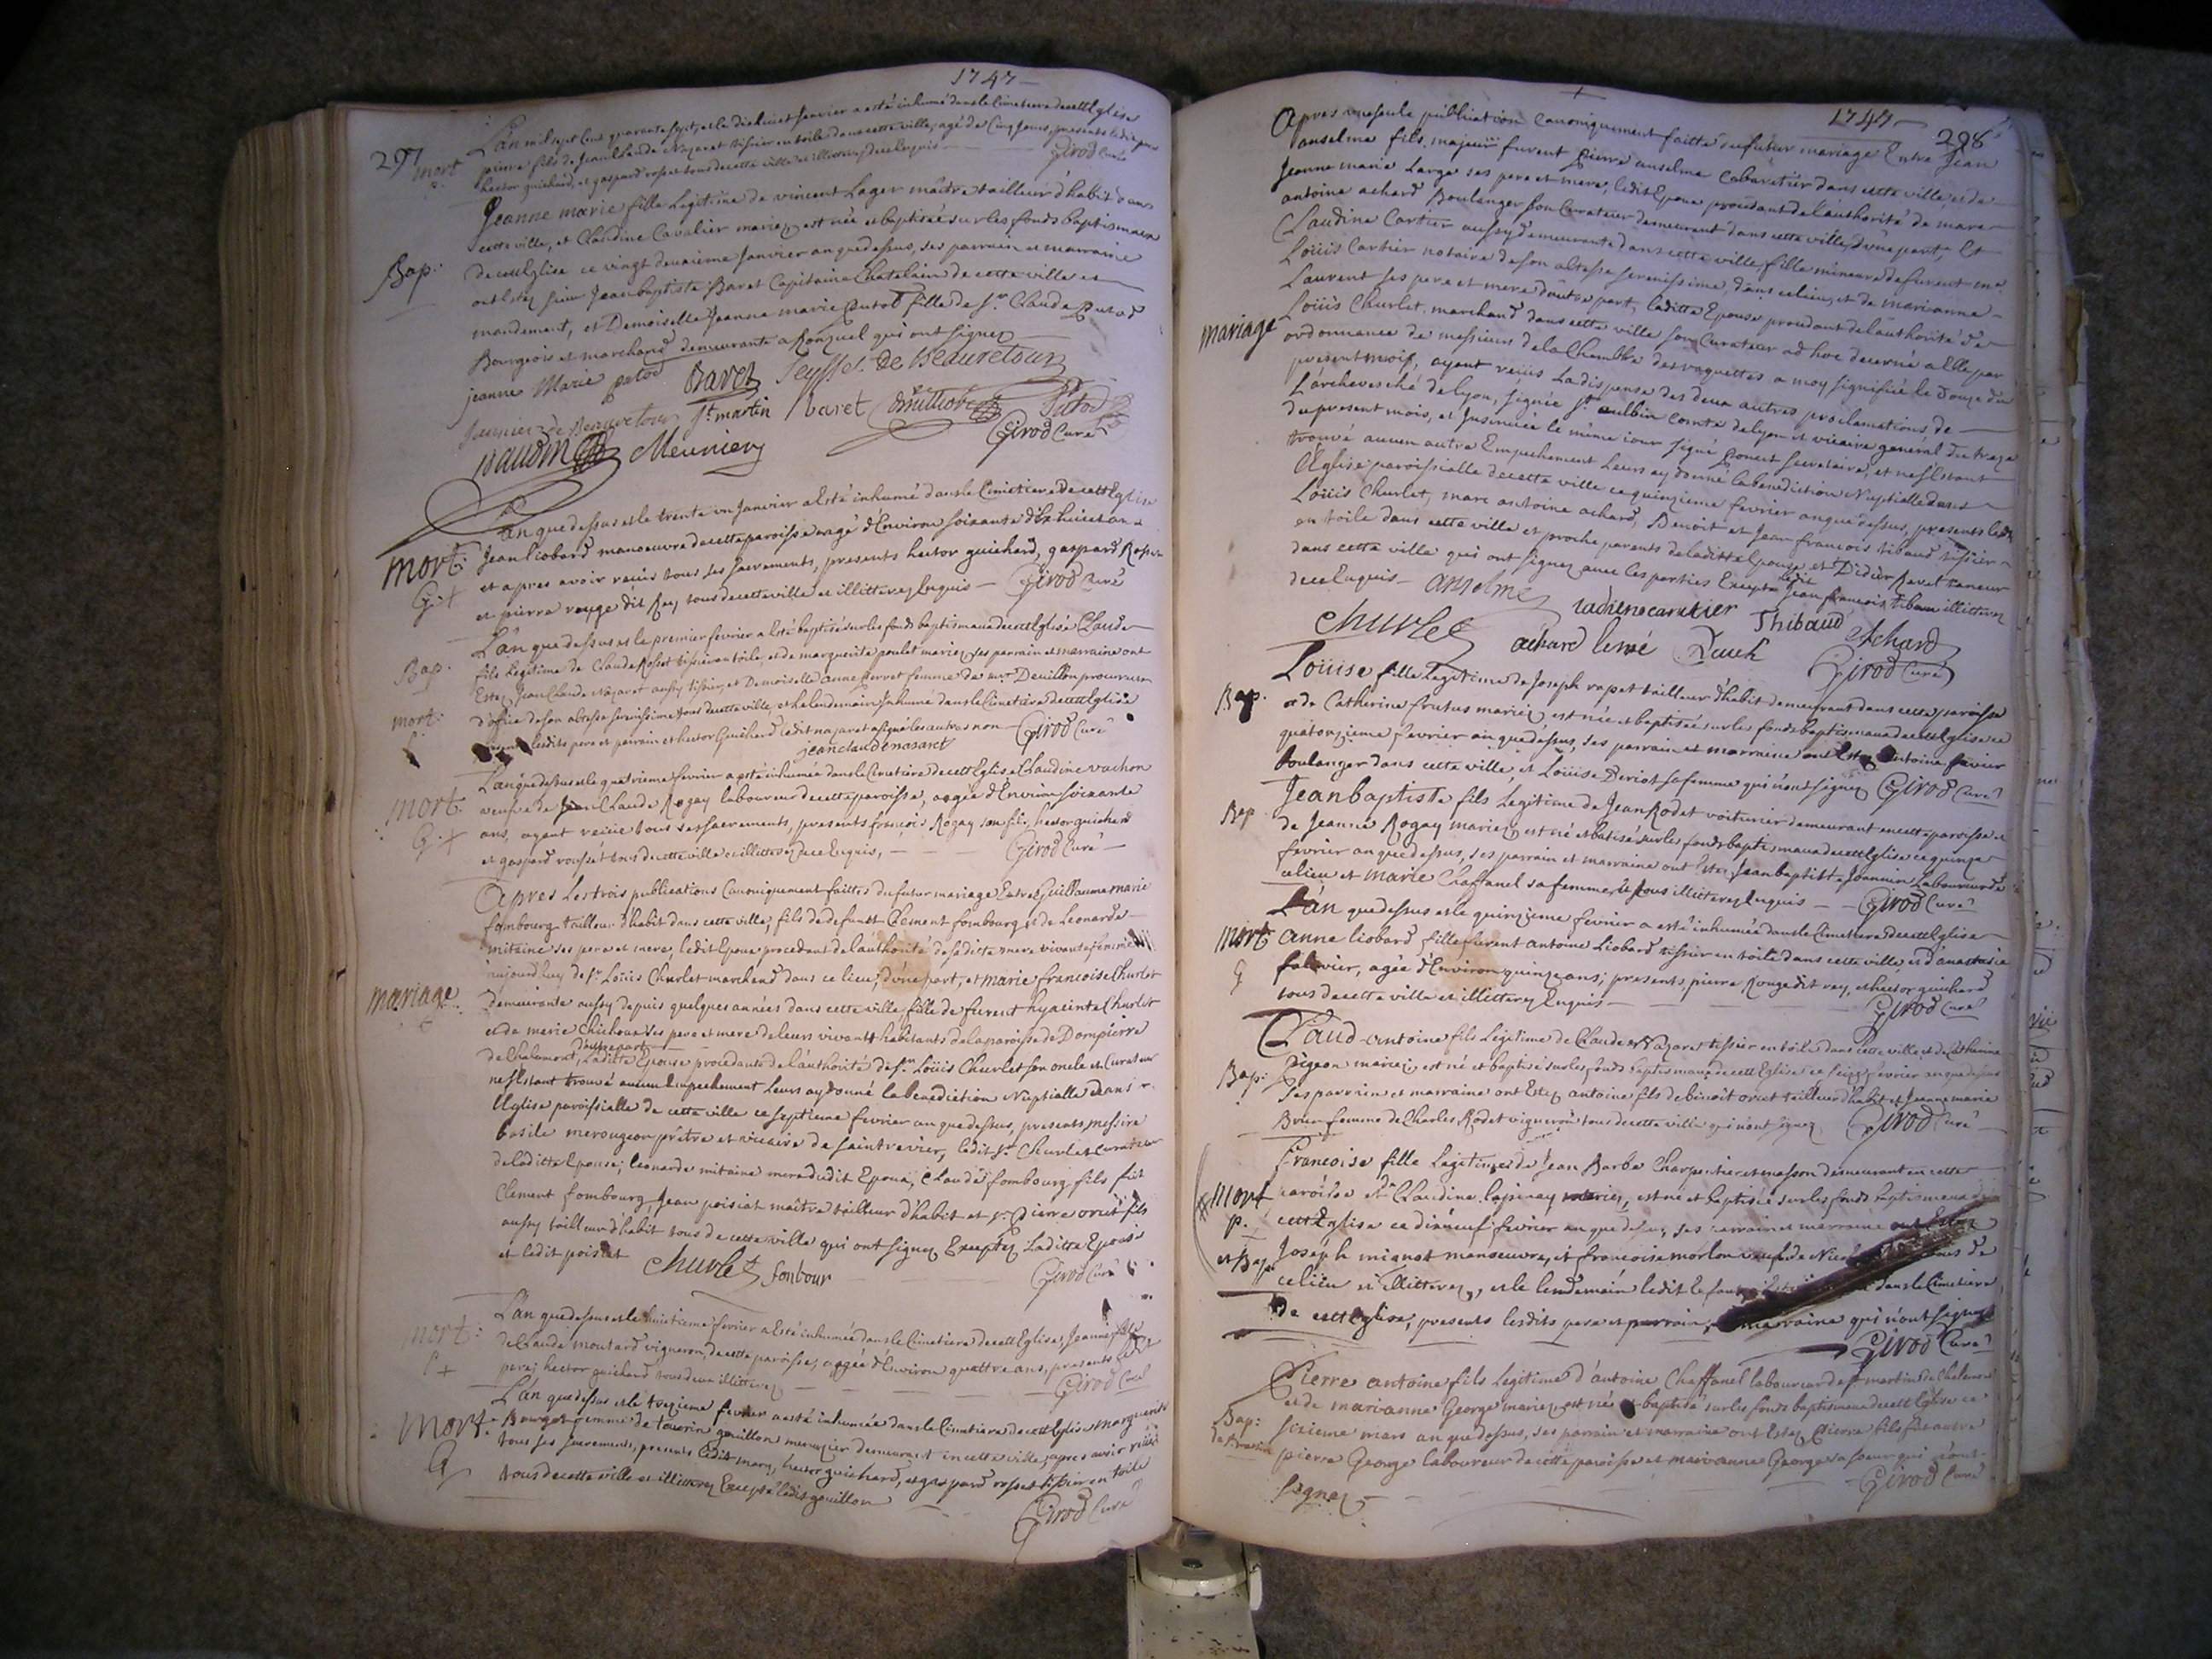 1747
297
mort
L'an mil sept cent quarante sept, et le dixhuit janvier a esté inhumé dans le Cimetiere de cett Eglise
pierre fils de Jean Claude Nazaret tissier en toile dans cette ville, agé de Cinq jours, presents ledit pere
hector guichard, et gaspard rosset tous de cette ville et illitterez de ce Enquis Girod Curé
Bap:
Jeanne marie fille Legitime de vincent Lager maître tailleur d'habit dans
cette ville, et Claudine Cavalier mariez est née et baptisée sur les fonds baptismaux
de cett Eglise ce vingt deuxieme Janvier an que dessus, ses parrain et marraine
ont Estez sieur Jean baptiste Baret Capitaine Chatelain de cette ville et
mandement, et Demoiselle Jeanne marie Putod fille de Sr. Claude Putod
Bourgeois et marchand demeurante a Ronzuel qui ont signez
jeanne Marie putod Baret Seyssel de Beauretour
de Beauretour St. martin baret Putod
Girod Curé
Meunier
mort:
G. +
L'an que dessus et le trente un Janvier a Esté inhumé dans le Cimetiere de cett Eglise
Jean Liobard manoeuvre de cette paroisse agé d'Environ soixante dix huict ans
et apres avoir reçüs tous ses sacrements, presents hector guichard, gaspard Rosset
et pierre rouge dit Rey tous de cette ville et illitterez Enquis — Girod Curé
Bap.
mort:
L'an que dessus et le premier fevrier a Esté baptisé sur les fonds baptismaux de cett Eglise Claude
fils Legitime de Claude Rosset tissier en toile, et de marguerite poulet mariez, ses parrain et marraine ont
Estez Jean Claude Nazaret aussy tissier, et Demoiselle anne femme de mr. Deuillon procureur
d'office de son altesse serenissime tous de cette ville, et le lendemain Inhumé dans le Cimetiere de cett Eglise
presents lesdits pere et parrain et hector Guichard ledit nazaret a signé les autres non — Girod Curé
jean claude nasaret
mort:
G. +
L'an que dessus et le quatrieme fevrier a esté inhumée dans le Cimetiere de cett Eglise Claudine vachon
veufve de Jean Claude Rogay laboureur de cette paroisse, agée d'Environ soixante
ans, ayant reçüe tous ses sacrements, presents françois Rogay son fils, hector guichard
et gaspard rousset tous de cette ville et illitterez de ce Enquis, — Girod Curé —
mariage
Apres Les trois publications Canoniquement faittes du futur mariage Entre Guillaume marie
fombourg tailleur d'habit dans cette ville, fils de defunt Clement fombourg et de Leonarde
mitaine ses pere et mere, ledit Epoux procedant de l'authorité de sa ditte mere vivante femme
aujourd'huy de Sr. Loüis Churlet marchand dans ce lieu, d'une part, et marie francoise Churlet
demeurante aussy depuis quelques années dans cette ville, fille de furent hyacinte Churlet
et de marie ses pere et mere de leurs vivants habitants de la paroisse de Dompierre
de Chalamont, d'autre part Laditte Epouse procedante de l'authorité de Sr. Loüis Churlet son oncle et Curateur
ne s'Estant trouvé aucun Empechement Leurs ay donné la benediction Nuptialle dans
l'Eglise paroissialle de cette ville ce septieme fevrier an que dessus, presents messire
basile merougeon prêtre et vicaire de saintrivier, ledit Sr. Churlet Curateur
de laditte Epouse, leonarde mitaine mere dudit Epoux, Claude fombourg fils fut
Clement fombourg, Jean poisiat maître tailleur d'habit et Sr. Pierre orcet fils
aussy tailleur d'habit tous de cette ville qui ont signez Exceptez Laditte Epouse
et ledit poisiat Churlet fonbour Girod Curé
mort:
P +
L'an que dessus et le huictieme fevrier a Esté inhumée dans le Cimetiere de cett Eglise, Jeanne fille
de Claude moutard vigneron de cette paroisse, agée d'Environ quattre ans, presents ledit
pere, hector guichard tous deux illitterez — Girod Curé
Mort:
G
L'an que dessus et le treizieme fevrier a esté inhumée dans le Cimetiere de cett Eglise marguerite
Bourget femme de taurin gouillon menuzier demeurant en cette ville, apres avoir reçüe
tous ses sacrements, presents ledit mary, hector guichard, et gaspard rosset tissier en toile
tous de cette ville et illitterez Excepté ledit gouillon
Girod Curé
1747
298
mariage
Apres une seule publication Canoniquement faitte du futur mariage Entre Jean
anselme fils majeur furent pierre anselme Cabaretier dans cette ville et de
Jeanne marie Large ses pere et mere, ledit Epoux procedant de l'authorité de marc
antoine achard Boulanger son Curateur demeurant dans cette ville, d'une part, Et
Claudine Cartier aussy demeurante dans cette ville, fille mineure de furent me
Loüis Cartier notaire de son altesse serenissime, dans ce lieu, et de marianne
Laurent ses pere et mere d'autre part, laditte Epouse procedant de l'authorité de
Loüis Churlet, marchand dans cette ville son Curateur ad hoc decerné a Elle par
ordonnance de messieurs de la Chambre des vaquettes a moy signifiée le Douze du
present mois, ayant reçüs La dispense des deux autres proclamations de
L'archevesché de Lyon, signée St. aulbin comte de Lyon et vicaire general du treze
du present mois, et Insinuée le même jour signé secretaire, et ne s'Estant
trouvé aucun autre Empechement Leurs ay donné la benediction Nuptialle dans
l'Eglise paroissialle de cette ville ce quinzieme fevrier an que dessus, presents ledit
Loüis Churlet, marc antoine achard, Benoit et Jean francois tibaud tissier
en toile dans cette ville et proche parents de laditte Epouse, et Didier Ravet taneur
dans cette ville qui ont signez avec les parties Excepté ledit Jean francois tibaud illitteré
de ce Enquis — anselme Thibaud
Churlet achard Achard
Girod Curé
Bap.
Loüise fille Legitime de Joseph rapet tailleur d'habit demeurant dans cette paroisse
et de Catherine frutus mariez est née et baptisée sur les fonds baptismaux de cett Eglise ce
quatorzieme fevrier an que dessus, ses parrain et marraine ont Estez antoine favier
boulanger dans cette ville et Loüise Periot sa femme qui n'ont signez Girod Curé
Bap
Jean baptiste fils Legitime de Jean Rodet voiturier demeurant en cette paroisse et
de Jeanne Rogay mariez est né et batisé sur les fonds baptismaux de cett Eglise ce quinze
fevrier an que dessus, ses parrain et marraine ont Estez Jean baptiste Joannin Laboureur de
ce lieu et marie Chaffanel sa femme tous illitterez Enquis — Girod Curé
mort
G
L'an que dessus et le quinzieme fevrier a esté inhumée dans le Cimetiere de cett Eglise
anne liobard fille furent antoine Liobard tissier en toile dans cette ville et d'anastasie
, agée d'Environ quinze ans; presents, pierre Rouge dit rey, et hector guichard
tous de cette ville et illitterez Enquis — Girod Curé
Bap:
Claud-antoine fils Legitime de Claude Nazaret tissier en toile dans cette ville et de Catherine
pigeon mariez est né et baptisé sur les fonds baptismaux de cett Eglise ce seize fevrier an que dessus
ses parrain et marraine ont Estez antoine fils de benoît orcet tailleur d'habit et Jeanne marie
Brun femme de Charles Rodet vigneron tous de cette ville qui n'ont signez Girod Curé
mort
p.
et Bap
Francoise fille Legitime de Jean Barbe Charpentier et masson demeurant en cette
paroisse et Claudine mariez, est né et baptisée sur les fonds baptismaux de
cett Eglise ce dixneuf fevrier an que dessus, ses parrain et marraine ont Estez
Joseph mignot manoeuvre, et francoise morlon veufve de tous de
ce lieu et illitterez, et le lendemain ledit Enfant a Esté dans le Cimetiere
de cett Eglise, presents lesdits pere et parrain, marraine qui n'ont signez
Girod Curé
Bap:
Pierre antoine fils Legitime d'antoine Chaffanel laboureur de st martin de Chalamont
et de marianne George mariez est né et baptisé sur les fonds baptismaux de cett Eglise ce
sixieme mars an que dessus, ses parrain et marraine ont Estez Pierre fils fut autre
pierre George laboureur de cette paroisse et marianne George sa soeur qui n'ont
signez — Girod Curé